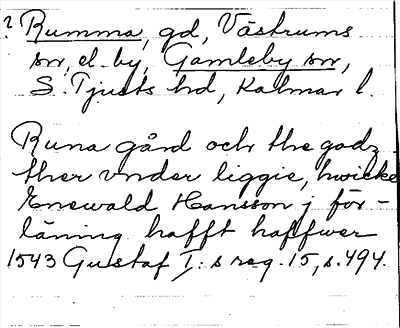 ? Rumma, gd, Västrums
sn, el. by, Gamleby sn,
S. Tjusts hd, Kalmar l.
Runa gård och the godz
ther vnder liggie, hwicke
Enewald Hansson j för-
läning hafft haffwer
1543 Gustaf I:s reg. 15, s. 494.